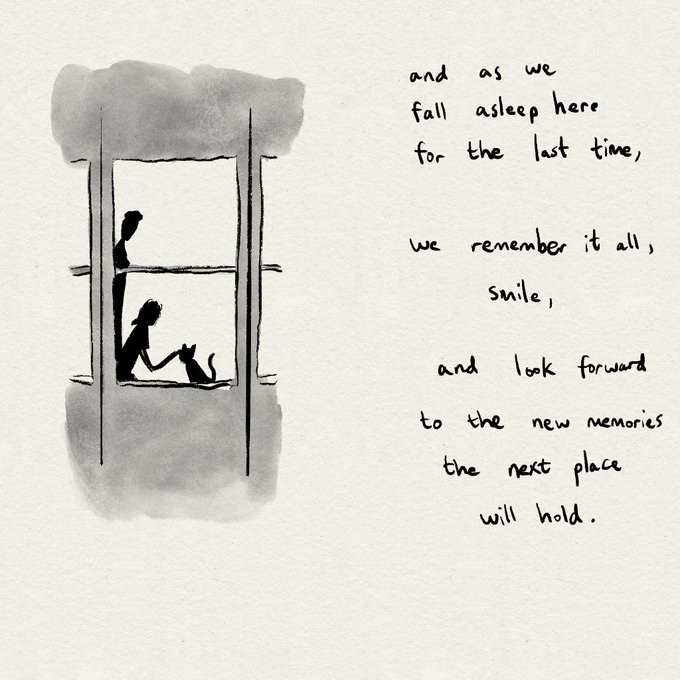 and as we
fall asleep here
for the last time,
we remember it all,
smile,
and look forward
to the new memories
the next place
will hold.